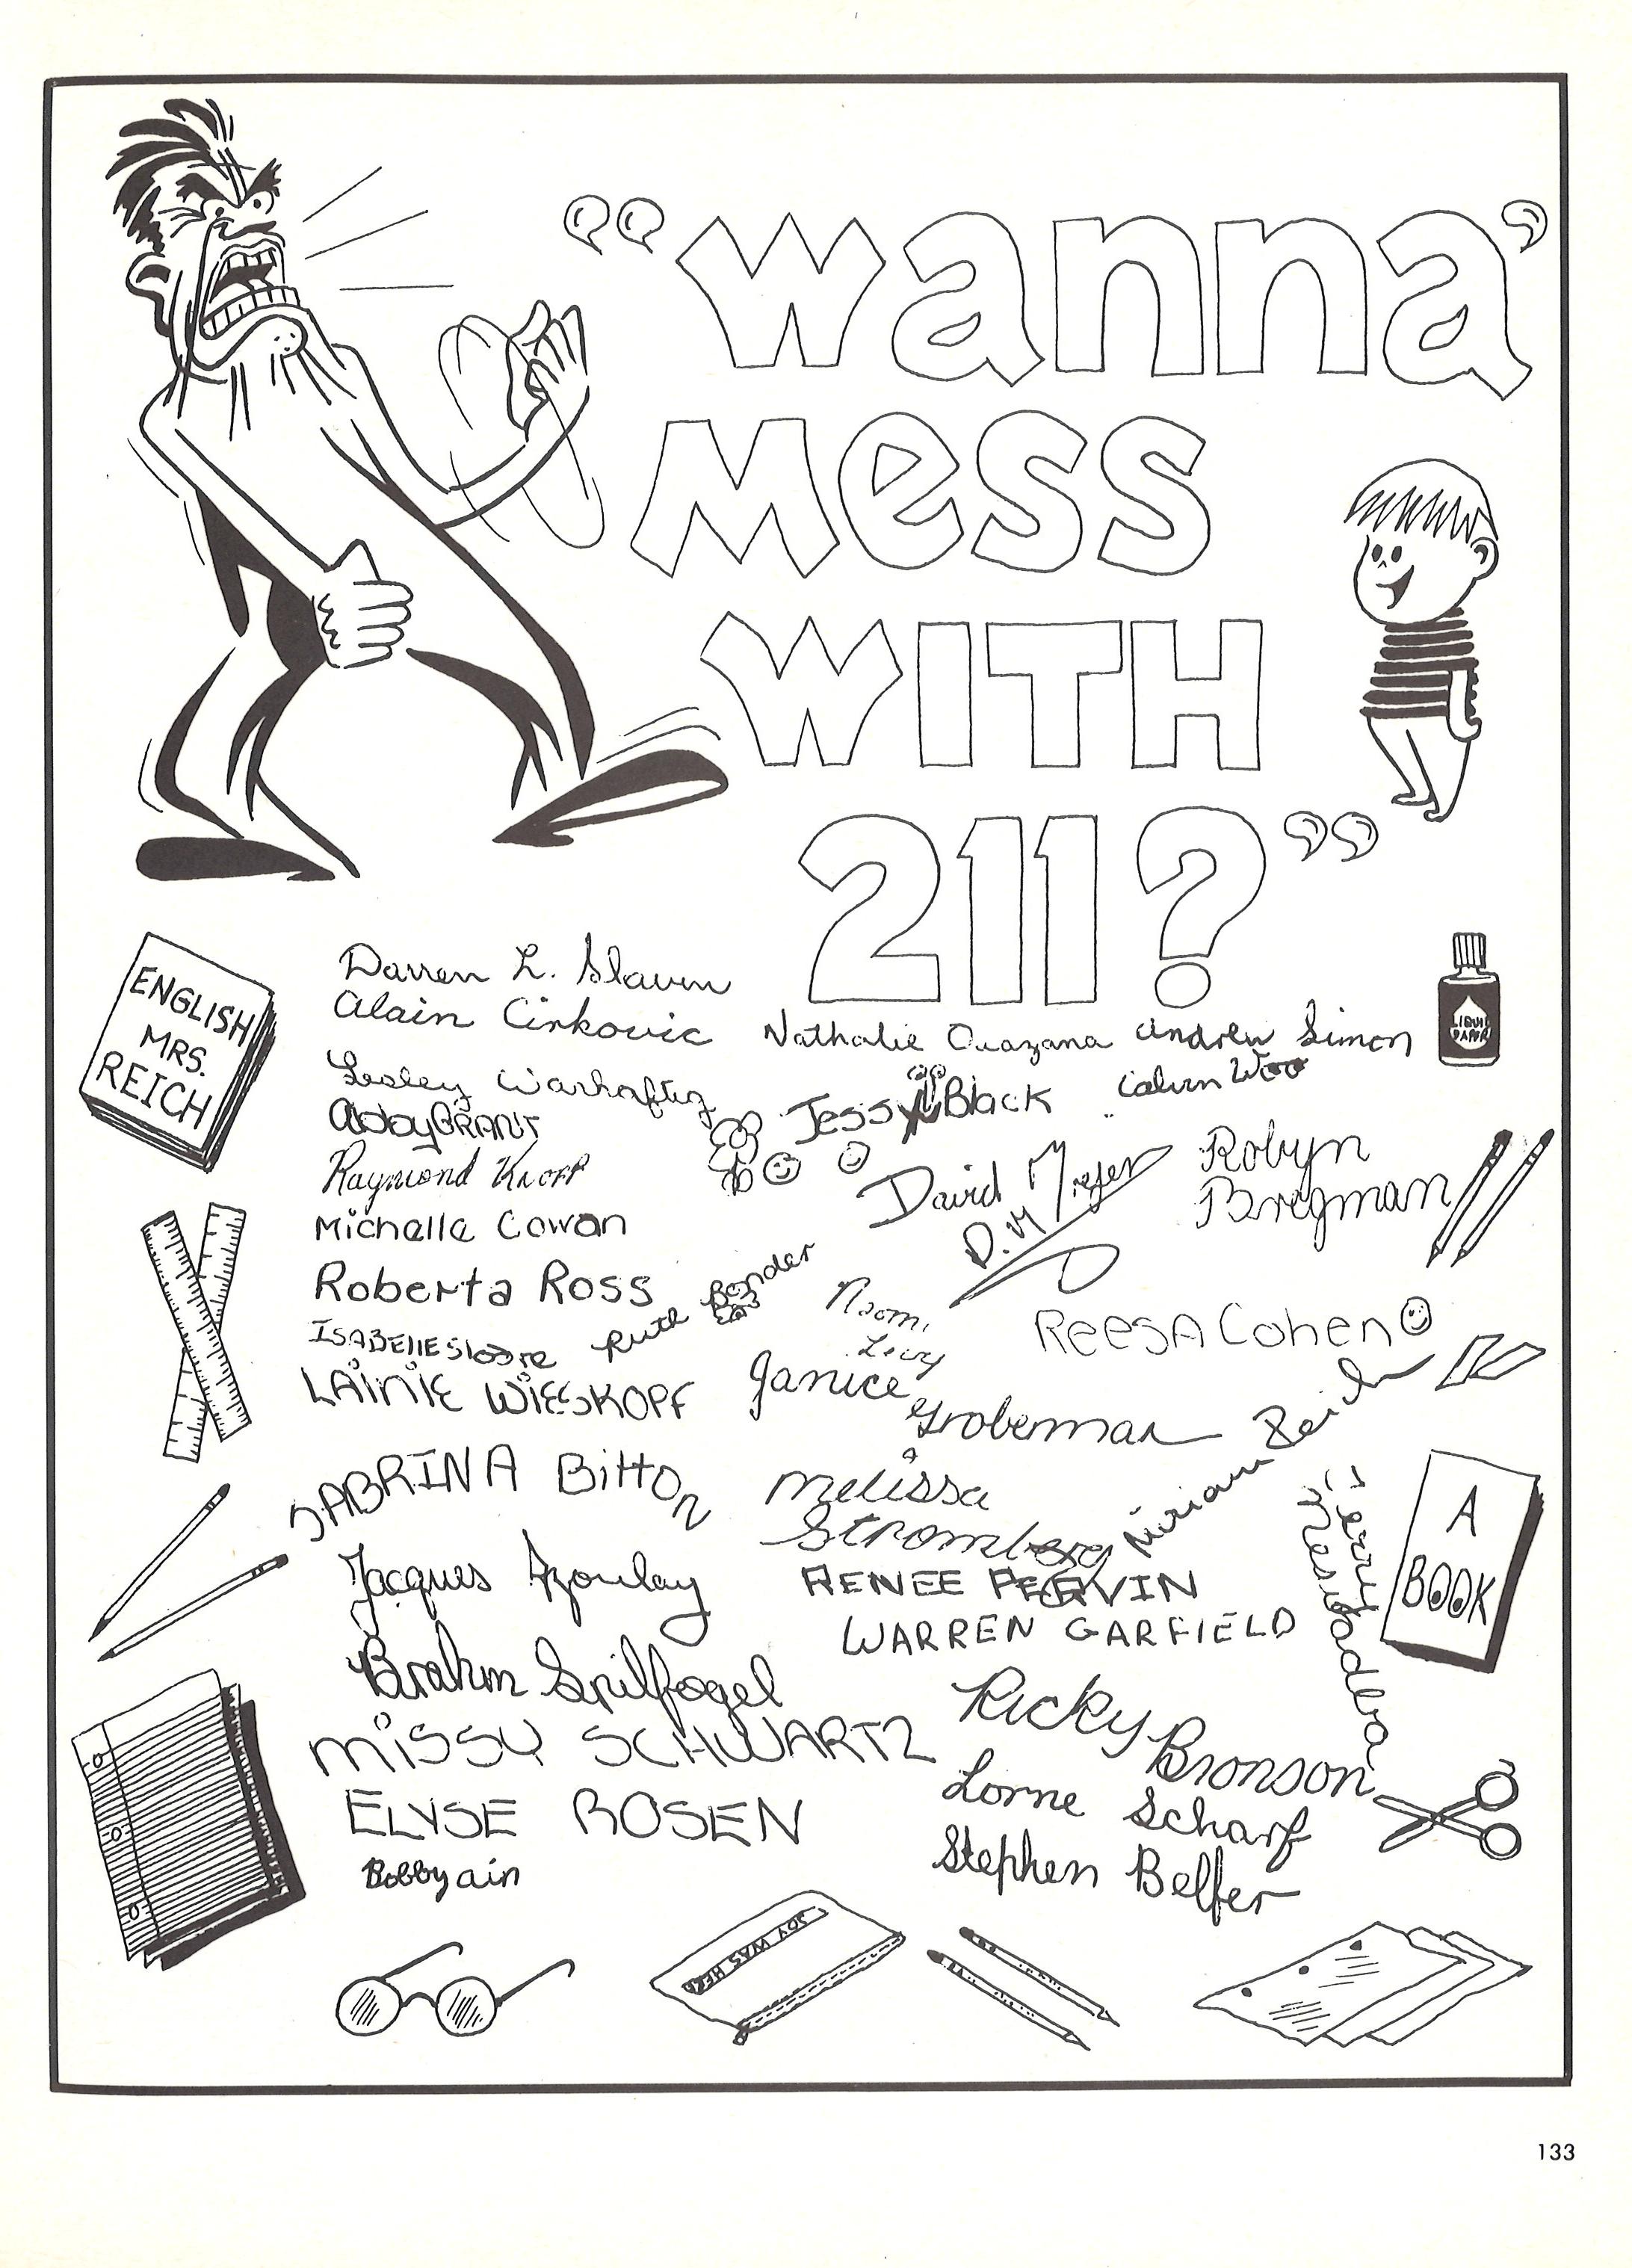 “wanna’
Mess
WITH
211?”
ENGLISH
MRS.
REICH
LIQUID
PAPER
Darren L. Slavin
Alain Cirkovic
Nathalie Ouazana
Andrew Simon
Lesley Warhaftig
Jessy Black
Calvin Woo
Abby GRANT
Raymond Knopp
David Meyer
D.M
Robyn
Bregman
Michelle Cowan
Roberta Ross
Ruth Bender
Naomi
Levy
ReesA Cohen
ISABEllE
LAiNiE WiESKOPF
Janice
Groberman
Miriam Reich
SABRINA BittON
Melissa
Stromberg
Jerry
A
BOOK
Jacques Azoulay
RENEE PERVIN
WARREN GARFIELD
Brahm Spilfogel
Ricky
Bronson
MiSSY SCHWARTZ
Lorne Scharf
ELYSE ROSEN
Stephen Belfer
Bobby ain
JOY WAS HERE
133